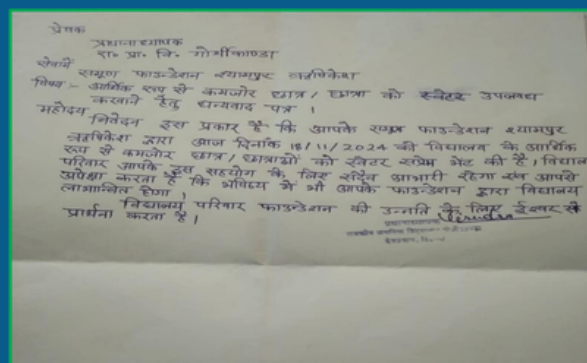 प्रेषक
प्रधानाध्यापक
रा. प्रा. वि. गोर्थीकाण्डा
सेवामें
समूण फाउन्डेशन श्यामपुर ऋषिकेश
विषय:- आर्थिक रूप से कमजोर छात्र/छात्रा को स्वेटर उपलब्ध
करवाने हेतु धन्यवाद पत्र।
महोदय
निवेदन इस प्रकार है कि आपके समूण फाउन्डेशन श्यामपुर
ऋषिकेश द्वारा आज दिनांक 18/11/2024 को विद्यालय के आर्थिक
रूप से कमजोर छात्र/छात्राओं को स्वेटर सप्रेम भेंट की है। विद्यालय
परिवार आपके इस सहयोग के लिए सदैव आभारी रहेगा एवं आपसे
अपेक्षा करता है कि भविष्य में भी आपके फाउन्डेशन द्वारा विद्यालय
लाभान्वित होगा।
विद्यालय परिवार फाउन्डेशन की उन्नति के लिए ईश्वर से
प्रार्थना करता है।
प्रधानाध्यापक